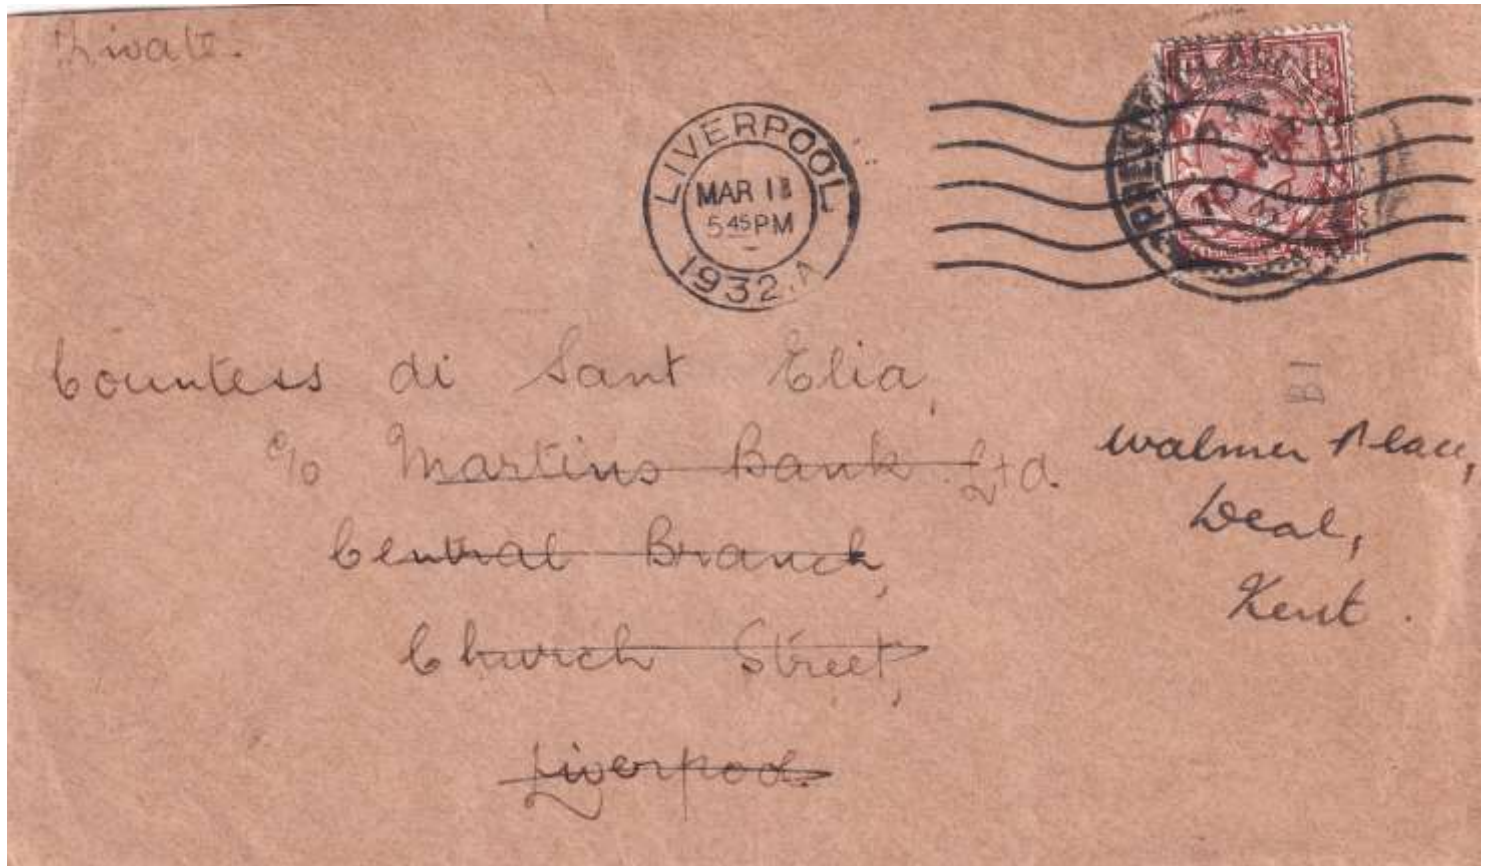 Private.
LIVERPOOL
MAR 18
5 45 PM
1932. A
10
B1
Countess di Sant Elia,
c/o Martins Bank Ltd.
Central Branch,
Church Street,
Liverpool.
Walmer Place,
Deal,
Kent.